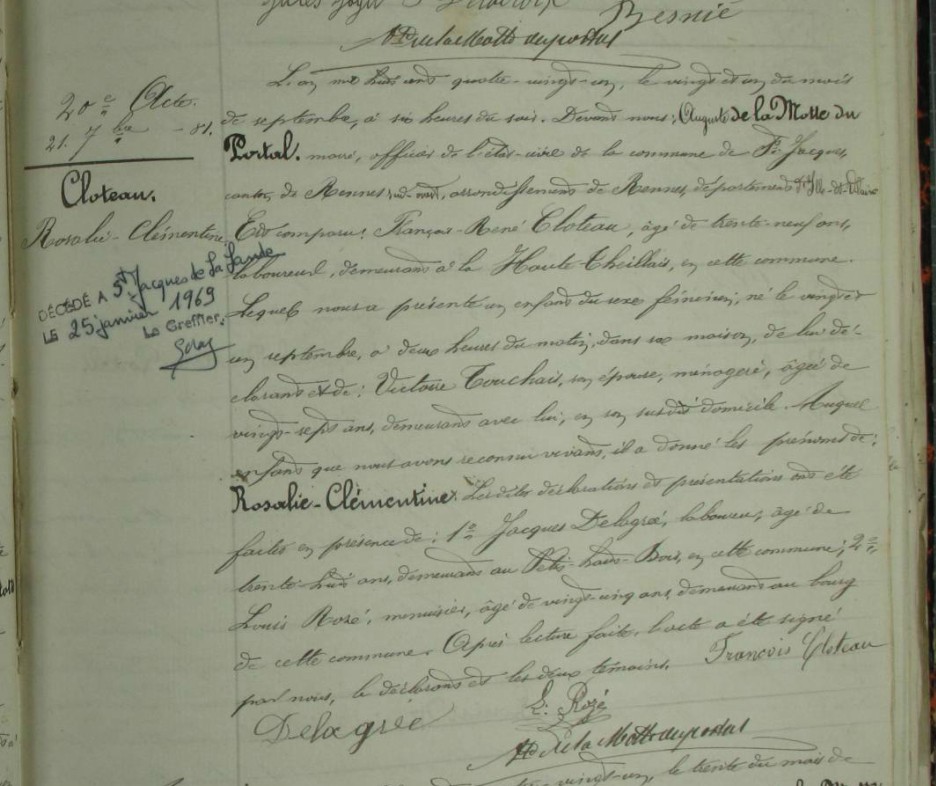 Besnié
Ate de la Motte du portal
20e Acte.
21. 7bre - 81.
Cloteau.
Rosalie-Clémentine
DÉCÉDÉ A St Jacques de la Lande
LE 25 janvier 1969
Le Greffier.
L'an mil huit cent quatre-vingt-un, le vingt et un du mois
de septembre, à six heures du soir. Devant nous, Auguste de la Motte du
Portal. maire, officier de l'état-civil de la commune de St Jacques,
canton de Rennes, arrondissement de Rennes, département d'Ille-et-Vilaine
Est comparu: François-René Cloteau, âgé de trente-neuf ans,
laboureur, demeurant à la Haute Theillais, en cette commune.
Lequel nous a présenté un enfant du sexe féminin, né le vingt et
un septembre, à deux heures du matin, dans sa maison, de lui dé-
clarant et de: Victoire Touchais, son épouse, ménagère, âgée de
vingt-sept ans, demeurant avec lui, en son susdit domicile. Auquel
enfant que nous avons reconnu vivant, il a donné les prénoms de:
Rosalie-Clémentine. Lesdites déclarations et présentations ont été
faites en présence de: 1o Jacques Delagrée, laboureur, âgé de
trente-huit ans, demeurant au Petit-Haut-Bois, en cette commune; 2o,
Louis Rozé, menuisier, âgé de vingt-cinq ans, demeurant au bourg
de cette commune. Après lecture faite, l'acte a été signé
par nous, le déclarant et les deux témoins. François Cloteau
Delagrée
L. Rozé
Ate de la Motte du portal
vingt-un, le trente du mois de